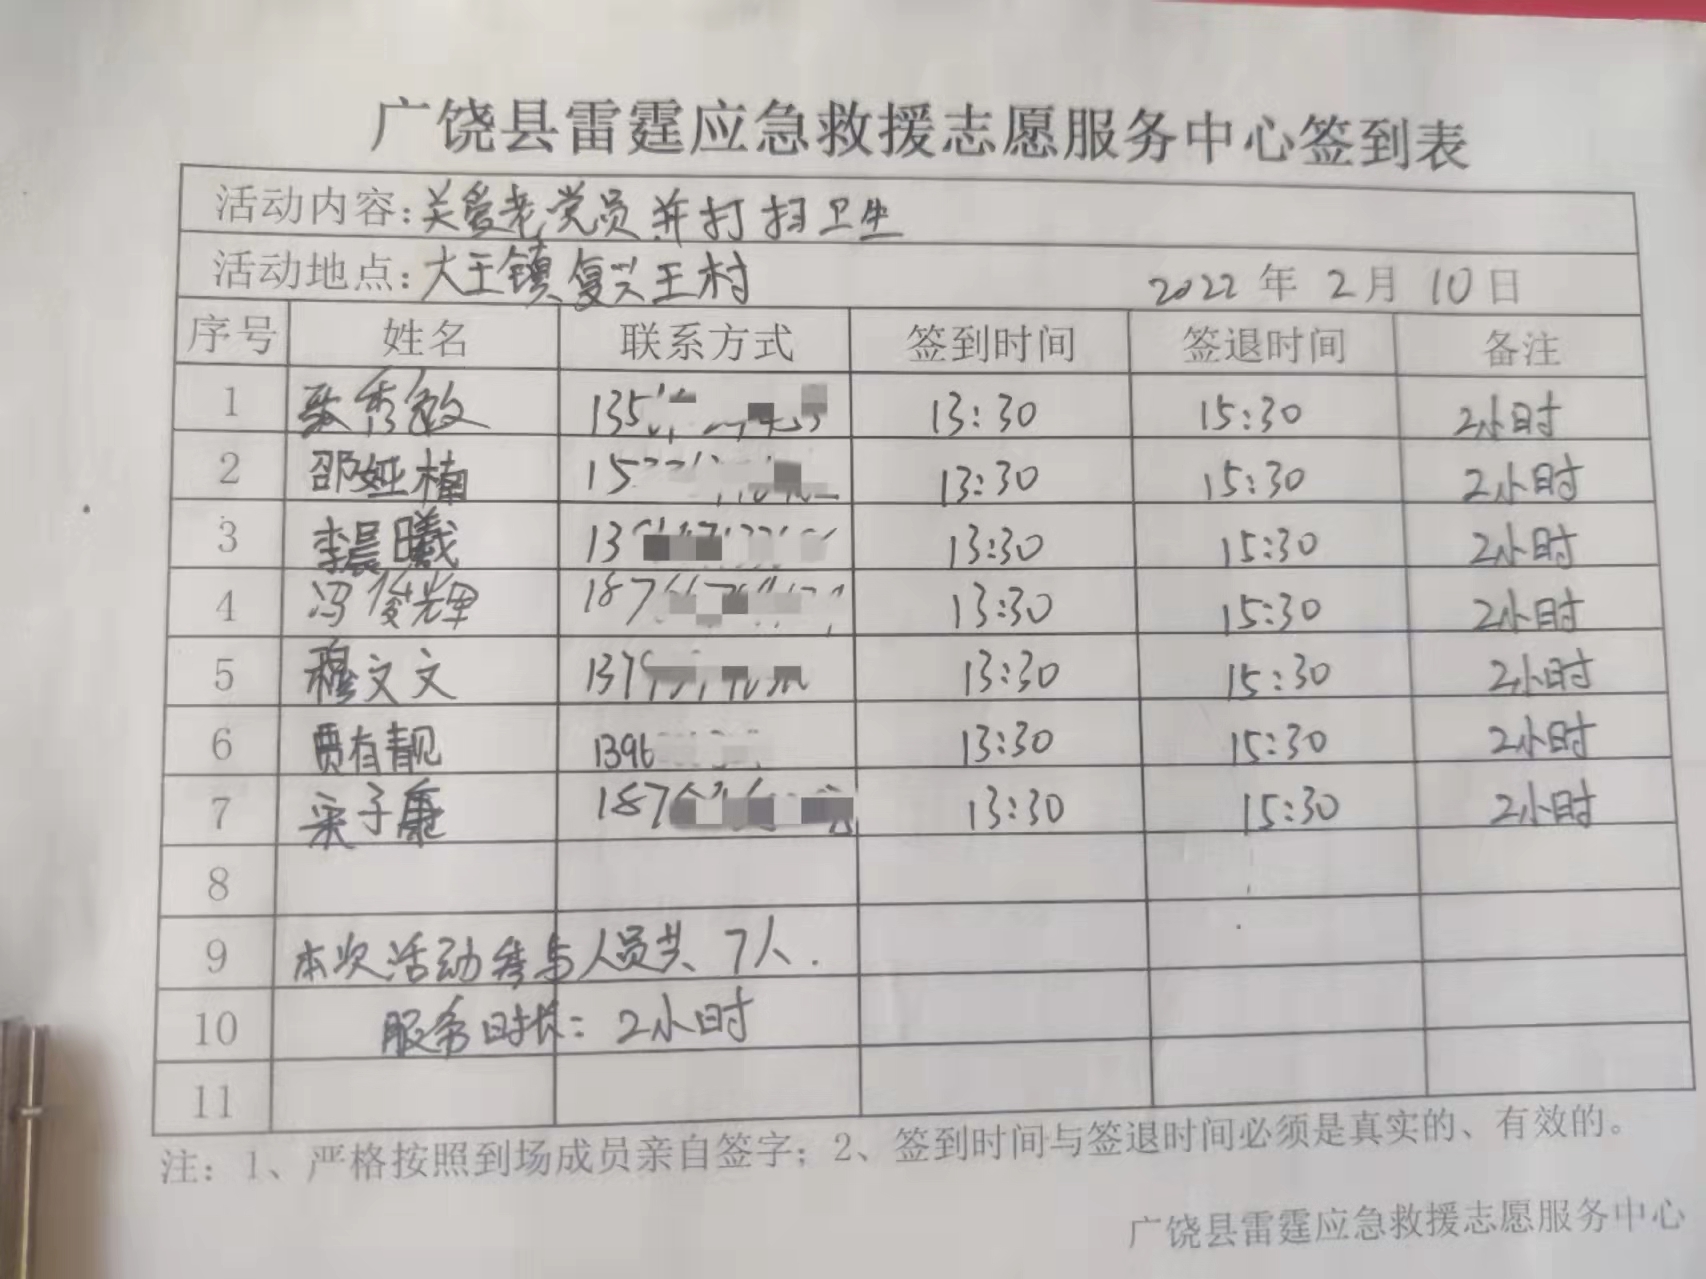 广饶县雷霆应急救援志愿服务中心签到表
活动内容:关爱老党员并打扫卫生
活动地点:大王镇复兴王村 2022年2月10日
序号 姓名 联系方式 签到时间 签退时间 备注
1 秀敏 135 13:30 15:30 2小时
2 邵娅楠 15 13:30 15:30 2小时
3 李晨曦 13 13:30 15:30 2小时
4 冯俊辉 187 13:30 15:30 2小时
5 穆文文 137 13:30 15:30 2小时
6 贾有靓 1396 13:30 15:30 2小时
7 子康 187 13:30 15:30 2小时
8
9 本次活动参与人员共7人.
10 服务时长:2小时
11
注:1、严格按照到场成员亲自签字;2、签到时间与签退时间必须是真实的、有效的。
广饶县雷霆应急救援志愿服务中心